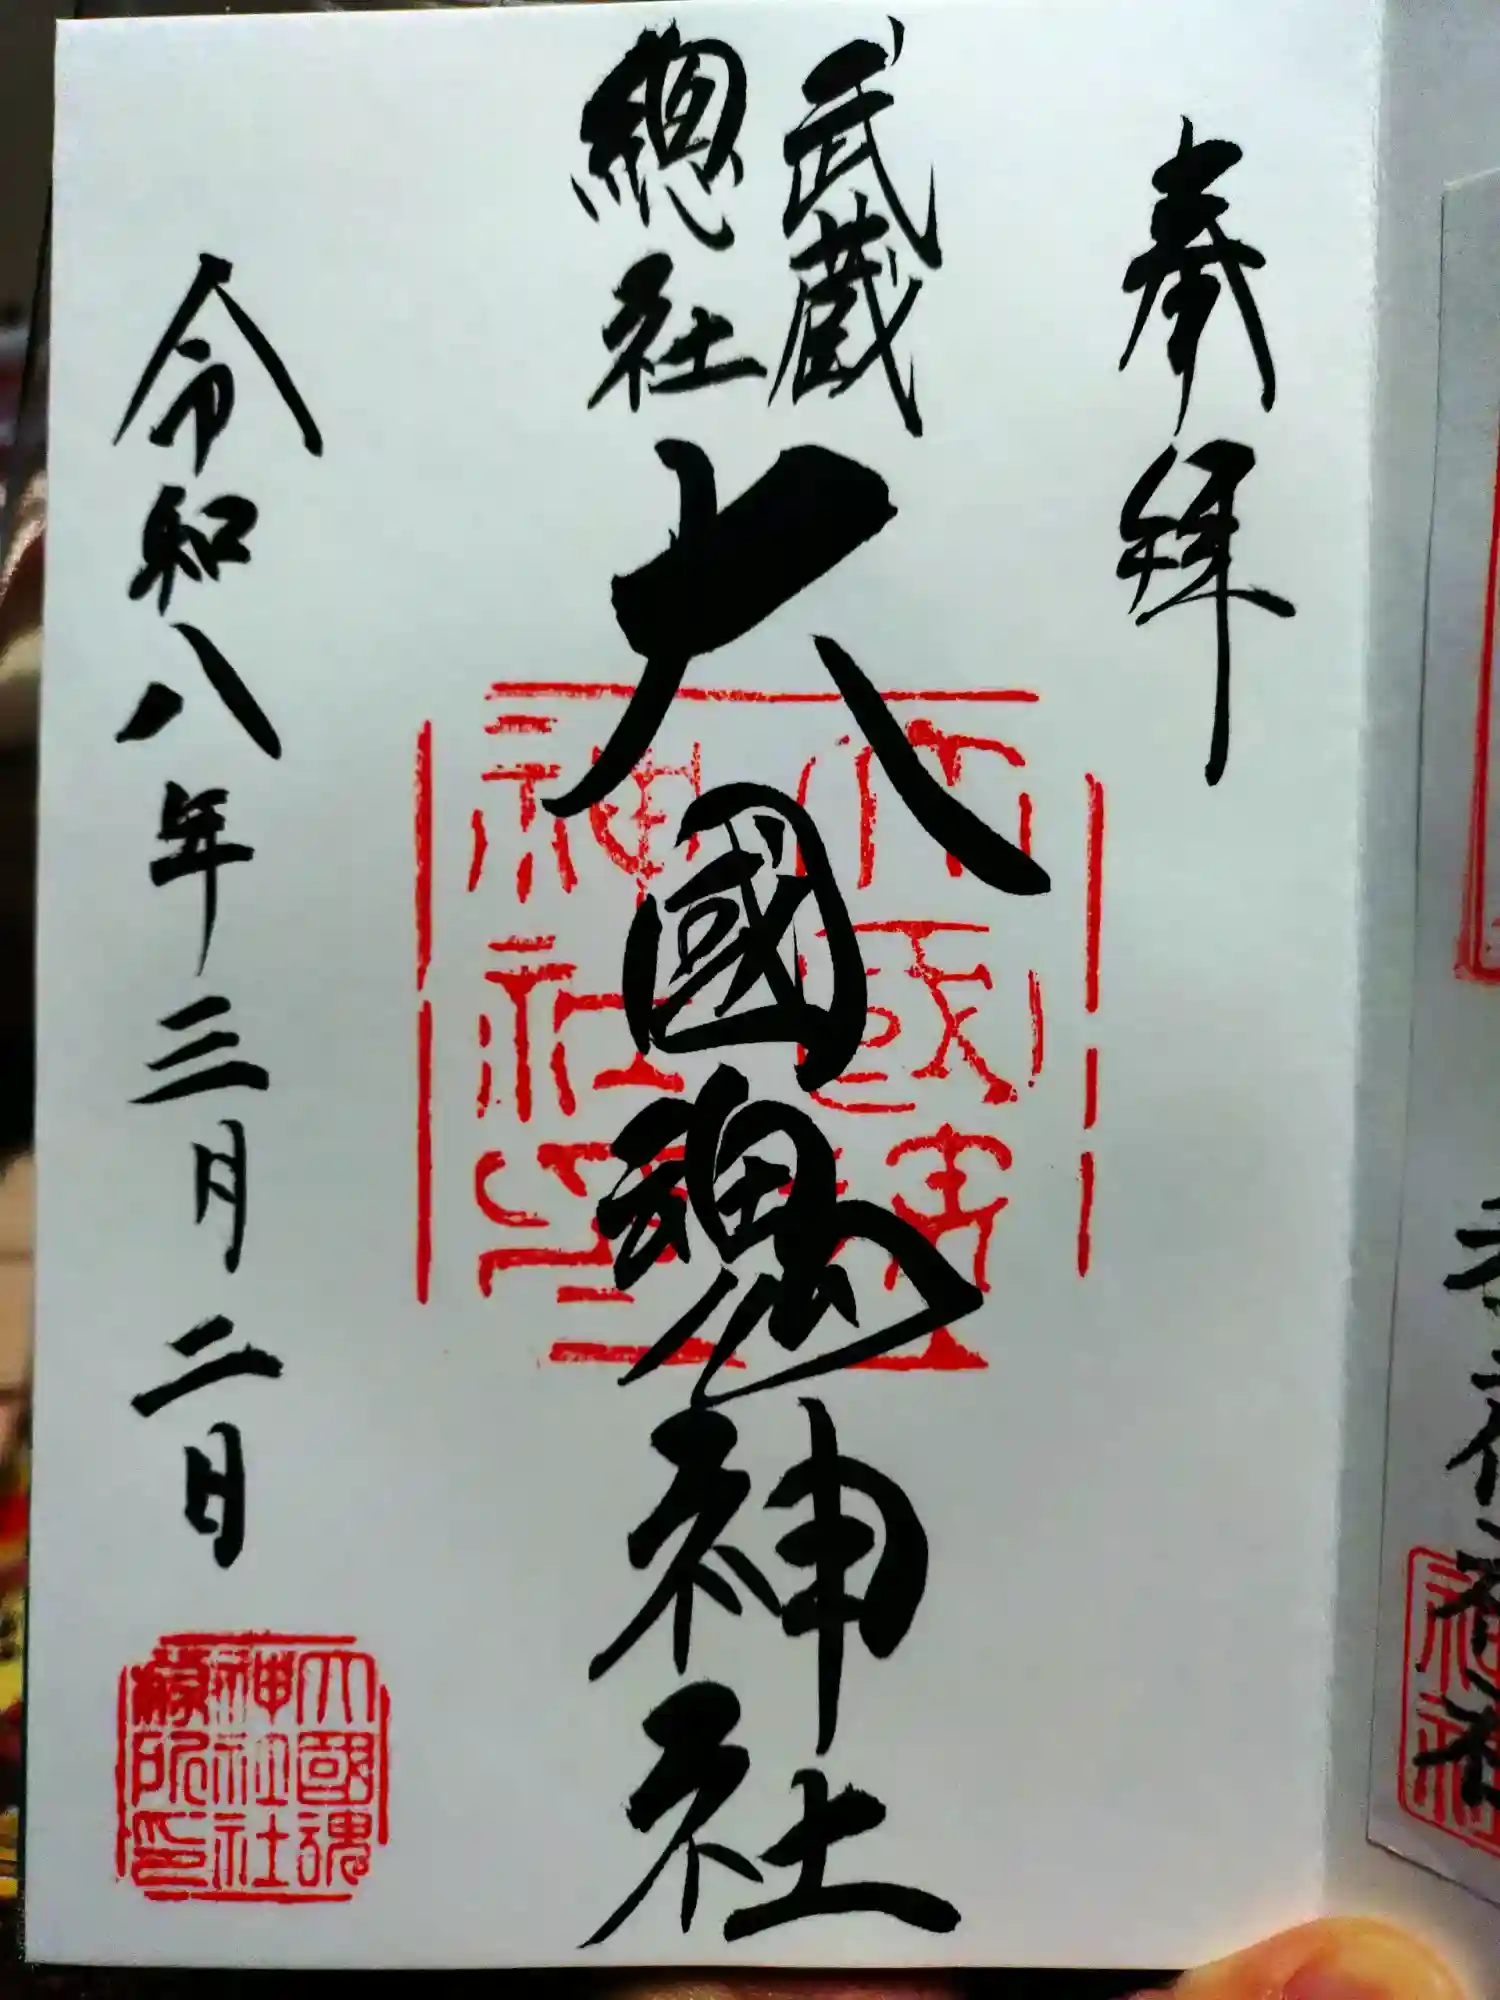 奉拝
武蔵
總社
大國魂神社
令和八年三月二日
大國魂
神社
務所印
神社